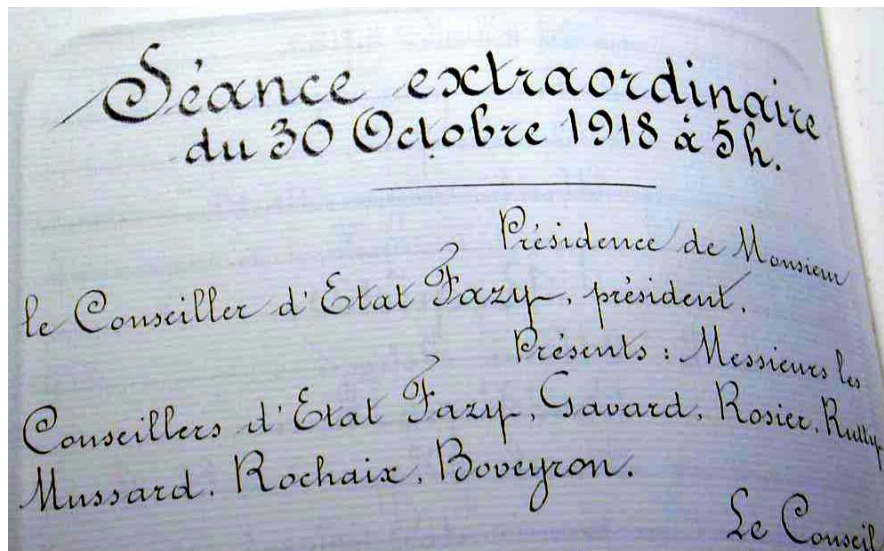 Séance extraordinaire
du 30 Octobre 1918 à 5h.
Présidence de Monsieur
le Conseiller d'Etat Fazy, président.
Présents : Messieurs les
Conseillers d'Etat Fazy, Gavard, Rosier, Rutty
Mussard, Rochaix, Boveyron.
Le Conseil